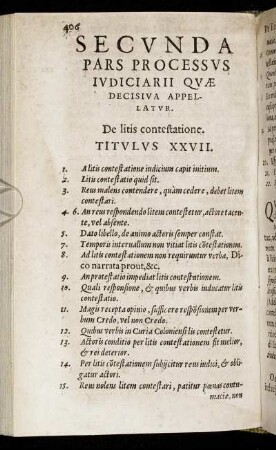 406
SECVNDA
PARS PROCESSVS
IVDICIARII QVÆ
DECISIVA APPEL-
LATVR.
De litis contestatione.
TITVLVS XXVII.
1. A litis contestatione iudicium capit initium.
2. Litis contestatio quid sit.
3. Reus malens contendere, quàm cedere, debet litem
contestari.
4. 6. An reus respondendo litem contestetur, actore tacen-
te, vel absente.
5. Dato libello, de animo actoris semper constat.
7. Temporis interuallum non vitiat litis cõtestationem.
8. Ad litis contestationem non requiruntur verba, Di-
co narrata prout, &c.
9. An protestatio impediat litis contestationem.
10. Quali responsione, & quibus verbis inducatur litis
contestatio.
11. Magis recepta opinio, sufficere respõsionem per ver-
bum Credo, vel non Credo.
12. Quibus verbis in Curia Coloniensi lis contestetur.
13. Actoris conditio per litis contestationem fit melior,
& rei deterior.
14. Per litis cõtestationem subijcitur reus iudici, & obli-
gatur actori.
15. Reus nolens litem contestari, patitur pœnas contu-
maciæ, non